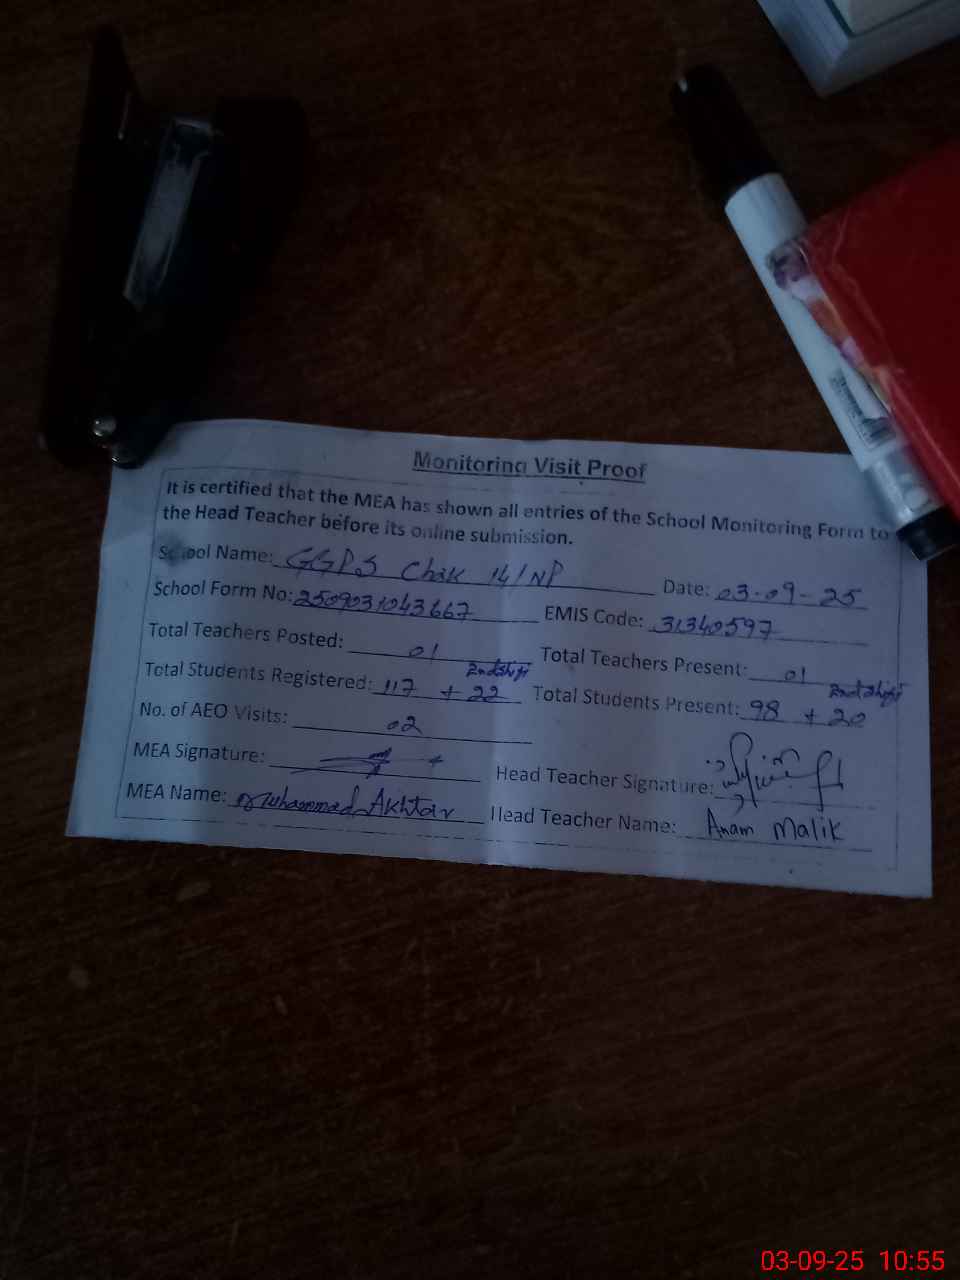 Monitoring Visit Proof
It is certified that the MEA has shown all entries of the School Monitoring Form to
the Head Teacher before its online submission.
School Name: GGPS Chak 14/NP Date: 03-09-25
School Form No: 2509031043667 EMIS Code: 31340597
Total Teachers Posted: 01 Total Teachers Present: 01
Total Students Registered: 117 + 22 2nd Shift Total Students Present: 98 + 20 2nd Shift
No. of AEO Visits: 02
MEA Signature: Head Teacher Signature:
MEA Name: Muhammad Akhtar Head Teacher Name: Anam Malik
03-09-25 10:55